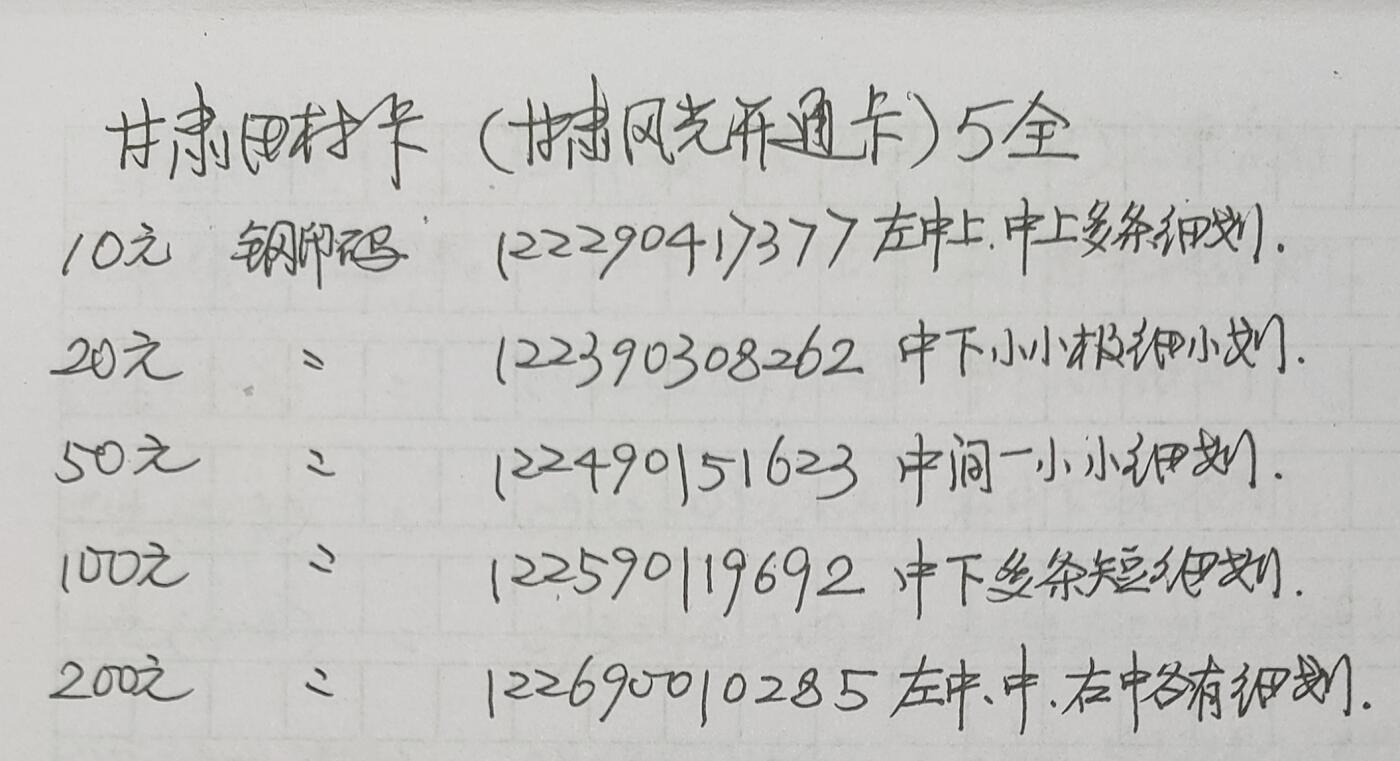 甘肃田村卡（甘肃风光开通卡）5全
10元 钢印码 122290417377 左中上.中上多条细划.
20元 〃 122390308262 中下小小极细小划.
50元 〃 122490151623 中间一小小细划.
100元 〃 122590119692 中下多条短细划.
200元 〃 122690010285 左中、中.右中各有细划.